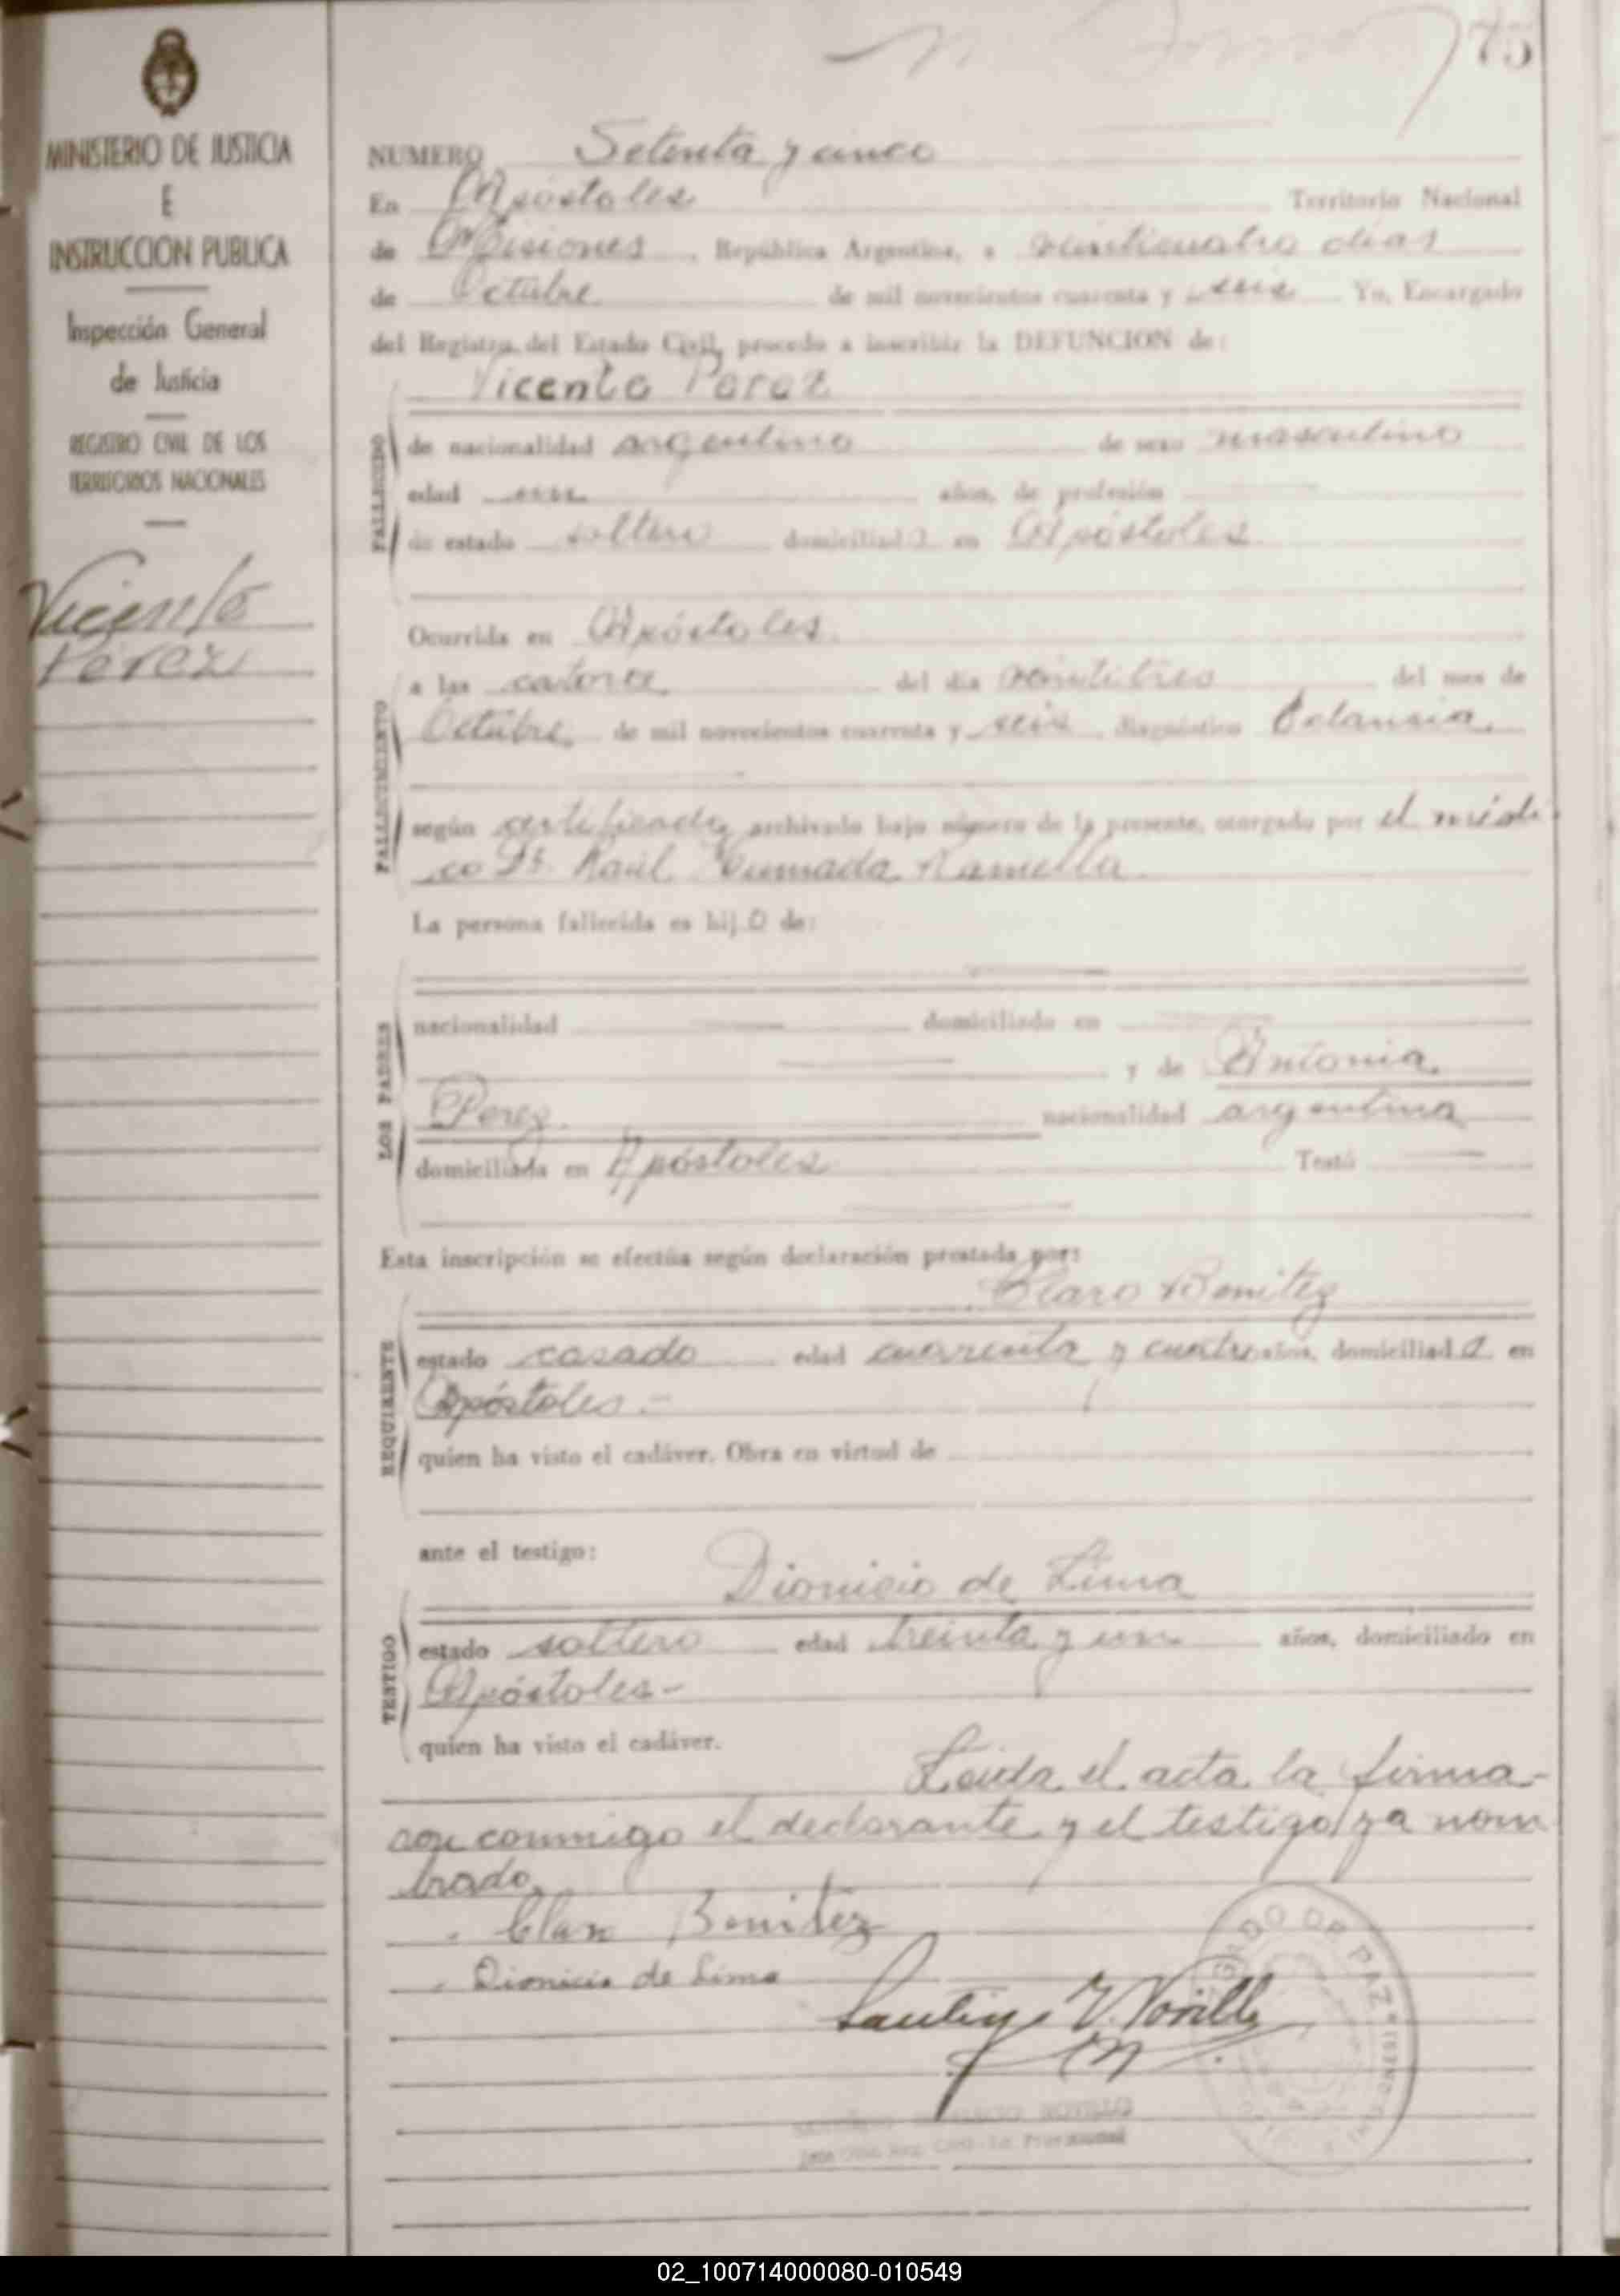 75
MINISTERIO DE JUSTICIA
E
INSTRUCCION PUBLICA
Inspección General
de Justicia
REGISTRO CIVIL DE LOS
TERRITORIOS NACIONALES
Vicente
Pérez
NUMERO Setenta y cinco
En Apóstoles Territorio Nacional
de Misiones, República Argentina, a veinticuatro días
de Octubre de mil novecientos cuarenta y seis Yo, Encargado
del Registro del Estado Civil, procedo a inscribir la DEFUNCION de:
Vicente Perez
FALLECIDO
de nacionalidad argentino de sexo masculino
edad años, de profesión
de estado soltero domiciliado en Apóstoles
FALLECIMIENTO
Ocurrida en Apóstoles
a las catorce del día veintitres del mes de
Octubre de mil novecientos cuarenta y seis diagnóstico Eclansia.
según certificado archivado bajo número de la presente, otorgado por el médi
co Dr. Raúl Ramella.
La persona fallecida es hijo de:
LOS PADRES
nacionalidad domiciliado en
y de Antonia
Perez. nacionalidad argentina
domiciliada en Apóstoles Testó
Esta inscripción se efectúa según declaración prestada por:
Claro Benitez
REQUIRENTE
estado casado edad cuarenta y cuatro años, domiciliado en
Apóstoles.-
quien ha visto el cadáver. Obra en virtud de
ante el testigo:
Dionicio de Lima
TESTIGO
estado soltero edad treinta y un años, domiciliado en
Apóstoles-
quien ha visto el cadáver.
Leida el acta la firma-
ron conmigo el declarante y el testigo ya nom
brado.
Claro Benitez
Dionicio de Lima
Santiago V. Novillo
JUZGADO DE PAZ
02_100714000080-010549